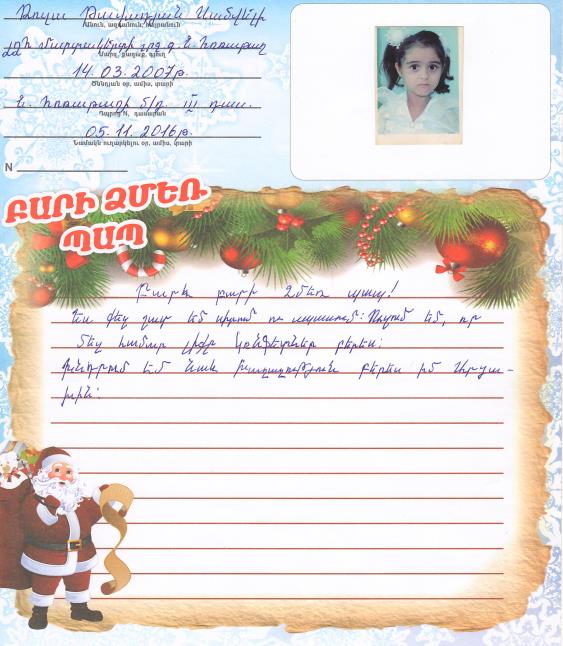 Թալա Թավադյան Սամվելի
Անուն, ազգանուն, հայրանուն
ԼՂՀ Մարտակերտի շրջ. գ. Ն. Հոռաթաղ
Մարզ, քաղաք, գյուղ
14. 03. 2007թ.
Ծննդյան օր, ամիս, տարի
Ն. Հոռաթաղի մ/դ. III դաս.
Դպրոց N, դասարան
05. 11. 2016թ.
Նամակն ուղարկելու օր, ամիս, տարի
N
ԲԱՐԻ ՁՄԵՌ
ՊԱՊ
Բարև բարի Ձմեռ պապ!
Ես քեզ շատ եմ սիրում ու սպասում: Ուզում եմ, որ
մեզ համար լիքը կոնֆետներ բերես:
Խնդրում եմ նաև խաղաղություն բերես իմ Արցա-
խին: